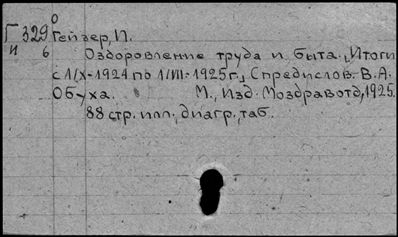 Г 329 0
и 6
Гейзер, И.
Оздоровление труда и быта. „Итоги
с 1/X-1924 по 1/VII-1925 г., С предислов. В.А.
Обуха. М., Изд. Моздравотд, 1925.
88 стр. илл., диагр., таб.